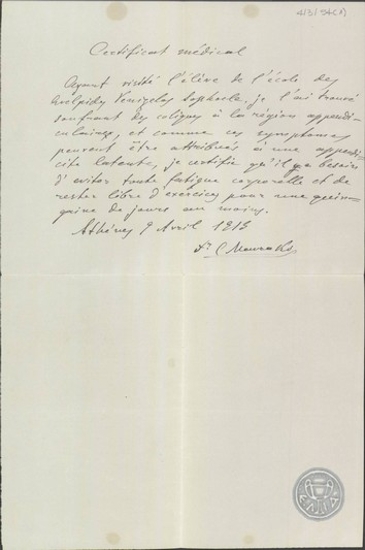 4/3/54(1)
Certificat médical
Ayant visité l'élève de l'école des
Evelpides Venizelos Sophocle, je l'ai trouvé
souffrant des coliques à la région appendi-
culaire, et comme ces symptomes
peuvent être attribués à une appendi-
cite latente, je certifie qu'il y a besoin
d'eviter toute fatigue corporelle et de
rester libre d'exercices pour une quin-
zaine de jours au moins.
Athènes 9 Avril 1915
Dr C Mermoglis